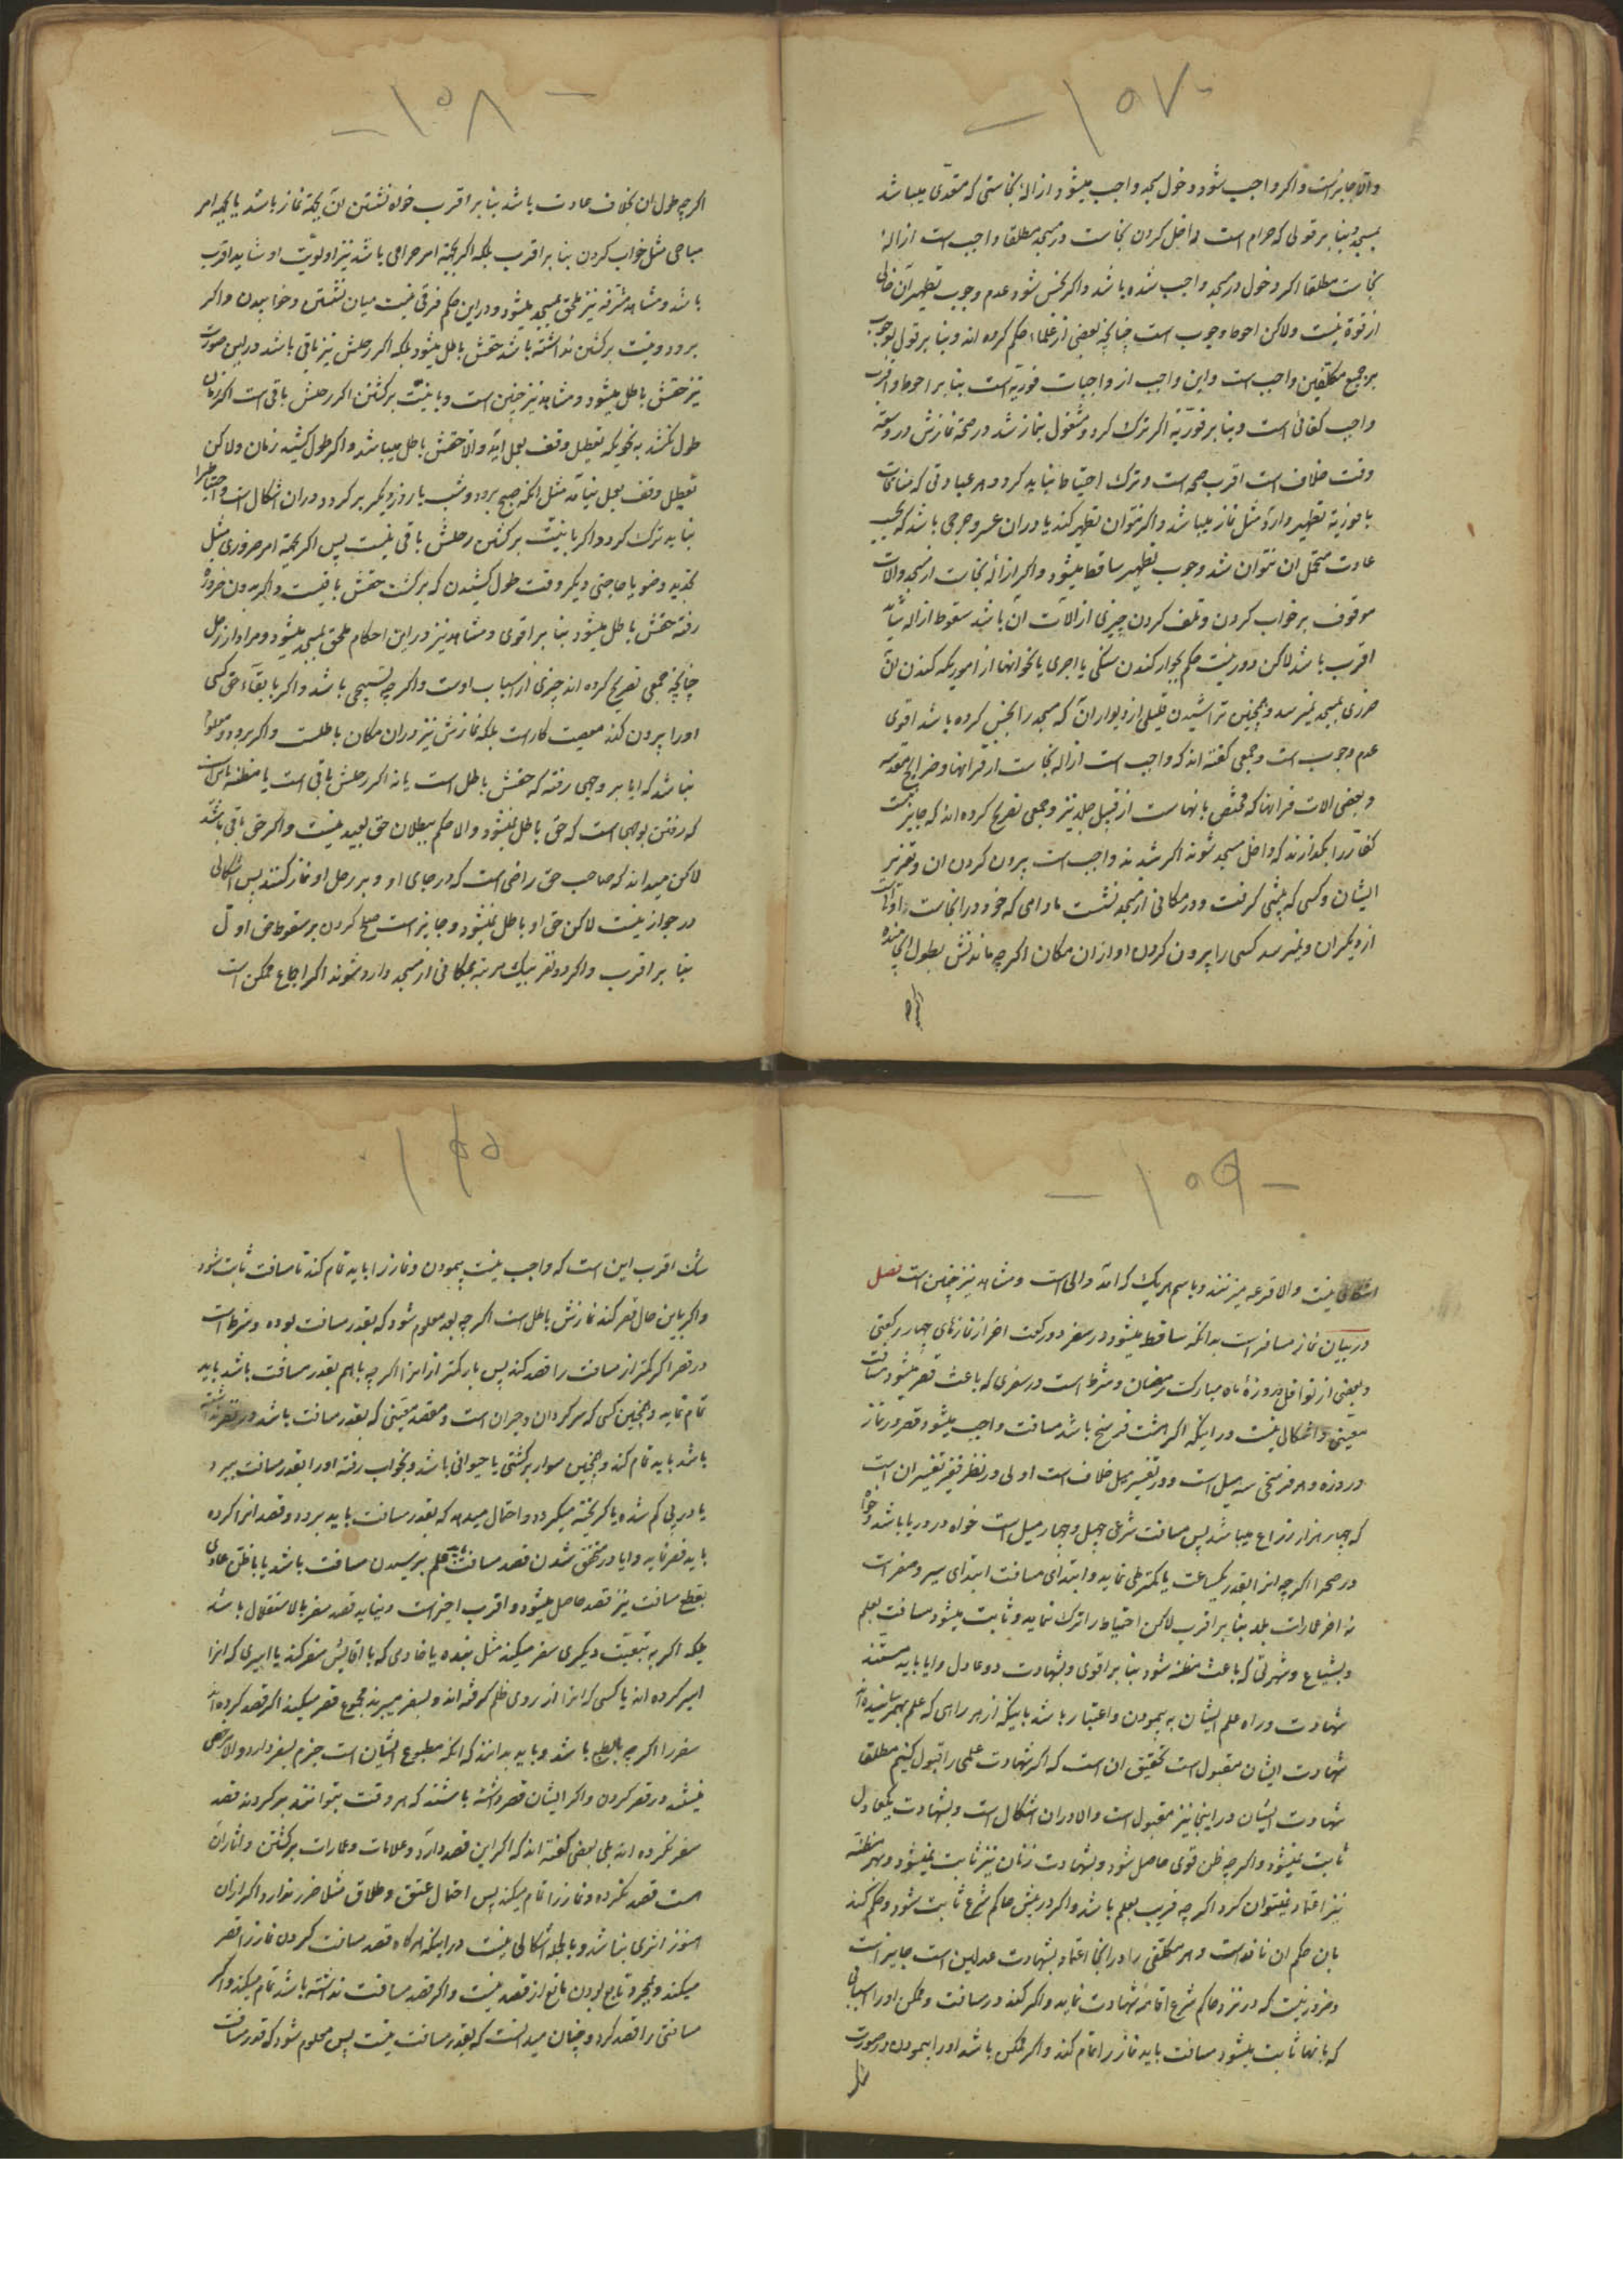 -۱۵۷-
والا جایز است و اگر واجب شود دخول مسجد واجب میشود ازالهٔ نجاستی که متعدّی میباشد
بمسجد و بنا بر قولی که حرام است داخل کردن نجاست در مسجد مطلقا واجب است ازالهٔ
نجاست مطلقا اگر دخول در مسجد واجب شده باشد و اگر نجس شود عدم وجوب تطهیر آن خالی
از قوة نیست ولاکن احوط وجوب است چنانچه بعضی از علماء حکم کرده اند و بنا بر قول بوجوب
بر جمیع مکلّفین واجب است و این واجب از واجبات فوریّه است بنا بر احوط و اقرب
واجب کفائی است و بنا بر فوریّة اگر ترک کرد و مشغول بنماز شد در صحّة نمازش در وسعة
وقت خلاف است اقرب صحه است و ترک احتیاط نباید کرد و هر عبادتی که منافات
با فوریّة تطهیر دارد مثل نماز میباشد و اگر نتوان تطهیر کند یا در ان عسر و حرجی باشد که بحسب
عادت متحمّل ان نتوان شد وجوب تطهیر ساقط میشود و اگر ازالهٔ نجاست از مسجد و الات
موقوف بر خراب کردن و تلف کردن چیزی از الات آن باشد سقوط ازاله شاید
اقرب باشد لاکن دور نیست حکم بجواز کندن سنگی یا اجری یا نحو انها از اموریکه کندن ان
ضرری بمسجد نمیرسد و همچنین تراشیدن قلیلی از دیوار آن که مسجد را نجس کرده باشد اقوی
عدم وجوب است و جمعی گفته اند که واجب است ازاله نجاست از قرانها و ضرایح مقدسه
و بعضی الات قرانها که مختص بانهاست از قبیل جلد نیز و جمعی تصریح کرده اند که جایز نیست
کفّار را بگذارند که داخل مسجد شوند اگر شدند واجب است بیرون کردن ان و تعزیر
ایشان و کسی که پیشی گرفت و در مکانی از مسجد نشست مادامی که خود در انجاست اولی است
از دیگران و نمیرسد کسی را بیرون کردن او از ان مکان اگرچه ماندنش بطول انجامیده
اگرچه
-۱۵۸-
اگرچه طول ان بخلاف عادت باشد بنا بر اقرب خواه نشستن ان بجهة نماز باشد یا بجهة امر
مباحی مثل خواب کردن بنا بر اقرب بلکه اگر بجهة امر حرامی باشد نیز اولویّت او شاید اقرب
باشد و مشاهد مشرفه نیز ملحق بمسجد میشود و در این حکم فرقی نیست میان نشستن و خوابیدن و اگر
برود و نیت برگشتن نداشته باشد حقش باطل میشود بلکه اگر رحلش نیز باقی باشد در این صورت
نیز حقش باطل میشود و مشاهد نیز چنین است و با نیّت برگشتن اگر رحلش باقی است اگر زمان
طول نکشد به نحویکه تعطیل وقف بعمل اید والا حقش باطل میباشد و اگر طول کشید زمان ولاکن
تعطیل وقف بعمل نیامد مثل انکه صبح برود و شب یا روز دیگر برگردد در ان اشکال است و احتیاط را
نباید ترک کرد و اگر با نیت برگشتن رحلش باقی نیست پس اگر بجهة امر ضروری مثل
تجدید وضو یا حاجتی دیگر وقت طول کشیدن که برگشت حقش باقیست و اگر بدون ضرورة
رفته حقش باطل میشود بنا بر اقوی و مشاهد نیز در این احکام ملحق بمسجد میشود و مراد از رحل
چنانچه جمعی تصریح کرده اند چیزی از اسباب اوست و اگرچه تسبیحی باشد و اگر با بقاء حق کسی
او را بیرون کند معصیت کار است بلکه نمازش نیز در ان مکان باطلست و اگر برود و معلوم
نباشد که ایا بر وجهی رفته که حقش باطل است یا نه اگر رحلش باقی است یا مظنه باین است
که رفتن بوجهی است که حق باطل نمیشود والا حکم ببطلان حق بعید نیست و اگر حق باقی باشد
لاکن میداند که صاحب حق راضی است که در جای او و بر رحل او نماز کنند پس اشکالی
در جواز نیست لاکن حق او باطل نمیشود و جایز است صلح کردن بر سقوط حق اول
بنا بر اقرب و اگر دو نفر بیک مرتبه بمکانی از مسجد وارد شوند اگر اجتماع ممکن است
-۱۵۹-
اشکالی نیست والا قرعه میزنند و باسم هریک که امد و الی است و مشاهد نیز چنین است فصل
در بیان نماز مسافر است بدانکه ساقط میشود در سفر دو رکعت اخر از نمازهای چهار رکعتی
و بعضی از نوافل و روزهٔ ماه مبارک رمضان و شرط است در سفری که باعث قصر میشود مسافت
معیّنی و اشکالی نیست در اینکه اگر هشت فرسخ باشد مسافت واجب میشود قصر در نماز
و روزه و هر فرسخی سه میل است و در تفسیر میل خلاف است اولی در نظر فقیر تفسیر ان است
که چهار هزار ذراع میباشد پس مسافت شرعی چهل و چهار میل است خواه در دریا باشد و خواه
در صحرا اگرچه انرا بقدر یکساعت یا کمتر طی نماید و ابتدای مسافت ابتدای سیر و سفر است
نه اخر عمارات بلد بنا بر اقرب لاکن احتیاط را ترک ننماید و ثابت میشود مسافت بعلم
و بشیاع و شهرتی که باعث مظنه شود بنا بر اقوی و بشهادت دو عادل و ایا باید مستند
شهادت در راه علم ایشان به پیمودن و اعتبار باشد یا اینکه از هر راهی که علم بهم رسانیده اند
شهادت ایشان مقبول است تحقیق ان است که اگر شهادت علمی را قبول کنیم مطلقا
شهادت ایشان در اینجا نیز مقبول است والا در ان اشکال است و بشهادت یکعادل
ثابت نمیشود و اگرچه ظن قوی حاصل شود و بشهادت زنان نیز ثابت نمیشود و بهر مظنّه
نیز اعتماد نمیتوان کرد اگرچه قریب بعلم باشد و اگر در پیش حاکم شرع ثابت شود و حکم کند
بان حکم ان نافذ است و هر مکلفی را در اینجا اعتماد بشهادت عدلین است جایز است
و ضرور نیست که در نزد حاکم شرع اقامهٔ شهادت نماید و اگر شک کند در مسافت و ممکن او را اسبابی
که بانها ثابت میشود مسافت باید نماز را تمام کند و اگر ممکن باشد او را پیمودن در صورت
شک
۱۶۰
شک اقرب این است که واجب نیست پیمودن و نماز را باید تمام کند تا مسافت ثابت شود
و اگر باین حال قصر کند نمازش باطل است اگرچه بعد معلوم شود که بقدر مسافت بوده و شرط است
در قصر اگر کمتر از مسافت را قصد کند پس باز کمتر از انرا اگرچه باهم بقدر مسافت باشد باید
تمام نماید و همچنین کسی که سرگردان و حیران است و مقصد معیّنی که بقدر مسافت باشد در نظر نداشته
باشد باید تمام کند و همچنین سوار بر کشتی یا حیوانی باشد و بخواب رفته او را بقدر مسافت ببرد
یا در پی گم شده یا گریخته میگردد و احتمال میدهد که بقدر مسافت باید برود و قصد انرا کرده
باید قصر نماید و ایا در متحقق شدن قصد مسافت باید علم برسیدن مسافت باشد یا با ظن عادی
بقطع مسافت نیز قصد حاصل میشود و اقرب اخیر است و نباید قصد سفر بالاستقلال باشد
بلکه اگر به تبعیّت دیگری سفر میکند مثل بنده یا خادمی که با اقایش سفر کند یا اسیری که انرا
اسیر کرده اند یا کسی که انرا از روی ظلم گرفته اند و بسفر میبرند مجموع قصر میکنند اگر قصد کرده اند
سفر را اگرچه بالتبع باشد و باید بدانند که انکه مطبوع ایشان است جزم بسفر دارد والا مرخص
نیستند در قصر کردن و اگر ایشان قصد داشته باشند که هر وقت بتوانند برگردند قصد
سفر نکرده اند بلی بعضی گفته اند که اگر این قصد دارد و علامات و امارات برگشتن و اثار آن
هست قصد نکرده و نماز را تمام میکند پس احتمال عتق و طلاق مثلا ضرر ندارد اگر از ان
هنوز اثری نباشد و بالجمله اشکالی نیست در اینکه هرگاه قصد مسافت کردن نماز را قصر
میکند و بمجرد تابع بودن مانع از قصد نیست و اگر قصد مسافت نداشته باشد تمام میکند و اگر
مسافتی را قصد کرد و چنان میدانست که بقدر مسافت نیست پس معلوم شود که قدر مسافت